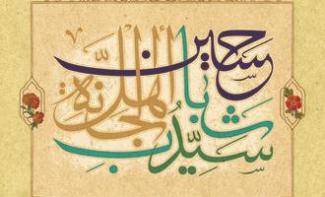 حسین سیّد شباب أهل الجنّة